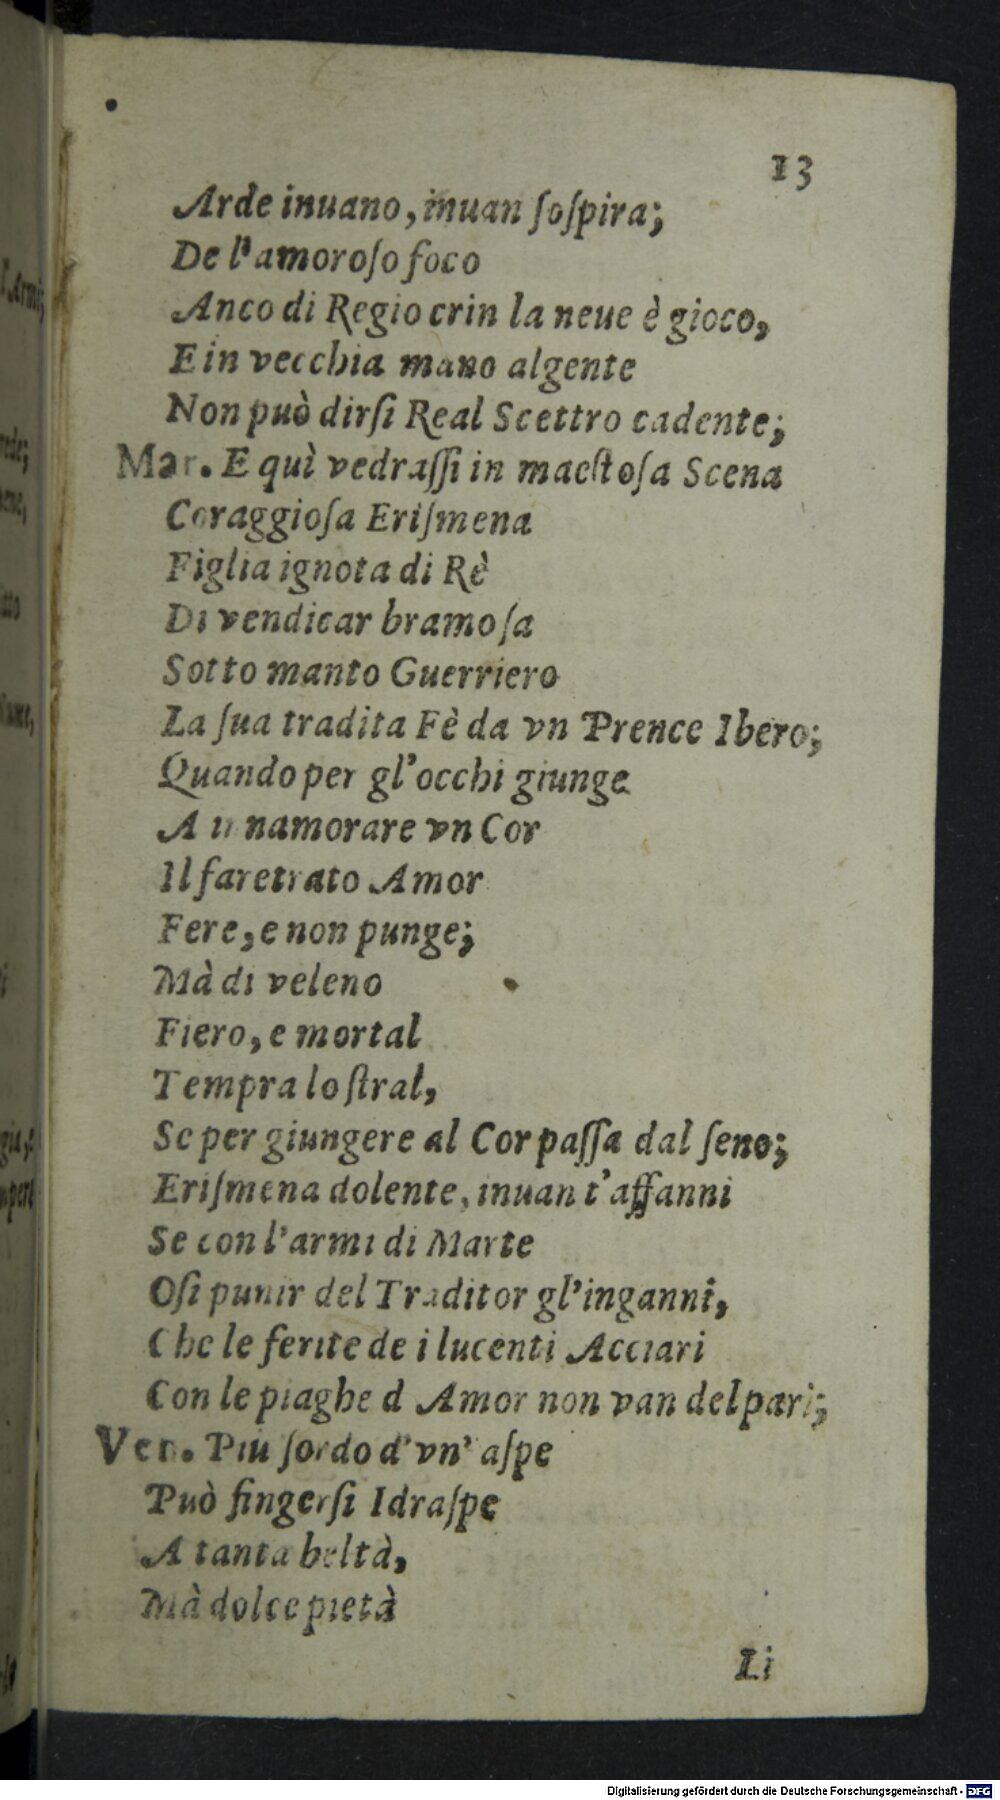 13
Arde inuano, inuan ſoſpira;
De l'amoroſo foco
Anco di Regio crin la neue è gioco,
E in vecchia mano algente
Non può dirſi Real Scettro cadente;
Mar. E quì vedraſſi in maeſtoſa Scena
Coraggioſa Eriſmena
Figlia ignota di Rè
Di vendicar bramoſa
Sotto manto Guerriero
La ſua tradita Fè da vn Prence Ibero;
Quando per gl'occhi giunge
A innamorare vn Cor
Il faretrato Amor
Fere, e non punge;
Mà di veleno
Fiero, e mortal
Tempra lo ſtral,
Se per giungere al Cor paſſa dal ſeno;
Eriſmena dolente, inuan t'affanni
Se con l'armi di Marte
Oſi punir del Traditor gl'inganni,
Che le ferite de i lucenti Acciari
Con le piaghe d Amor non van del pari;
Ven. Piu ſordo d'vn' aſpe
Può fingerſi Idraſpe
A tanta beltà,
Mà dolce pietà
Li
Digitalisierung gefördert durch die Deutsche Forschungsgemeinschaft - DFG